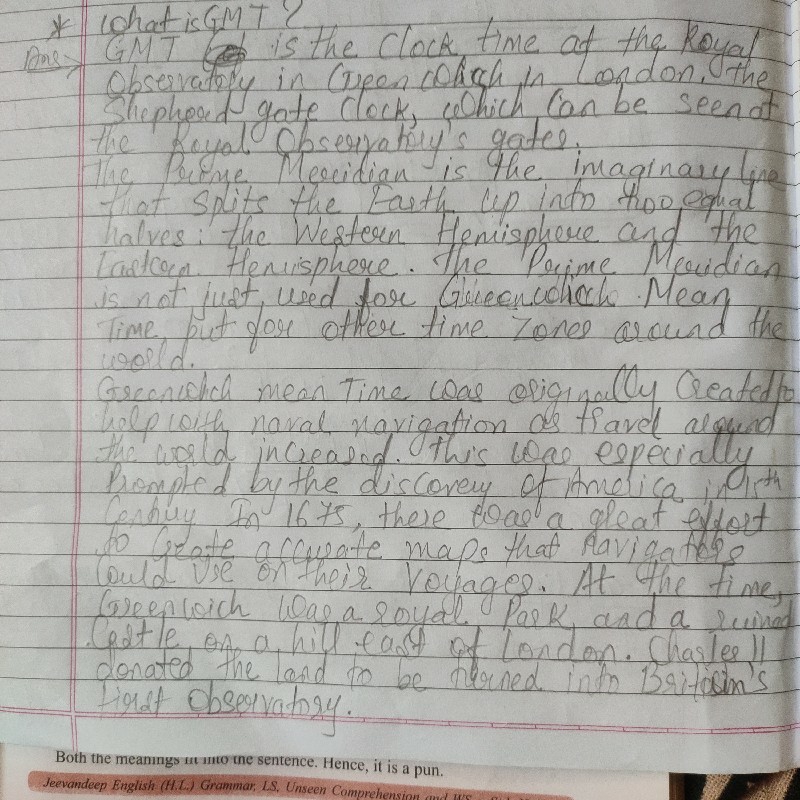 * What is GMT?
Ans> GMT is the Clock time at the Royal
Observatory in Greenwhich in London. The
Shepherd gate Clock, which Can be seen at
the Royal Observatory's gates.
The Prime Meridian is the imaginary line
that splits the Earth up into two equal
halves: the Western Hemisphere and the
Eastern Hemisphere. The Prime Meridian
is not just used for Greenwhich Mean
Time, but for other time Zones around the
world.
Greenwhich mean Time was originally Created to
help with naval navigation as travel around
the world increased. This was especially
Prompted by the discovery of America in 15th
Century In 1675, there was a great effort
to Create accurate maps that navigators
Could use on their Voyages. At the time,
Greenwich was a royal Park and a ruined
Castle on a hill east of London. Charles II
donated the land to be turned into Britain's
first Observatory.
Both the meanings fit into the sentence. Hence, it is a pun.
Jeevandeep English (H.L.) Grammar, LS, Unseen Comprehension and WS